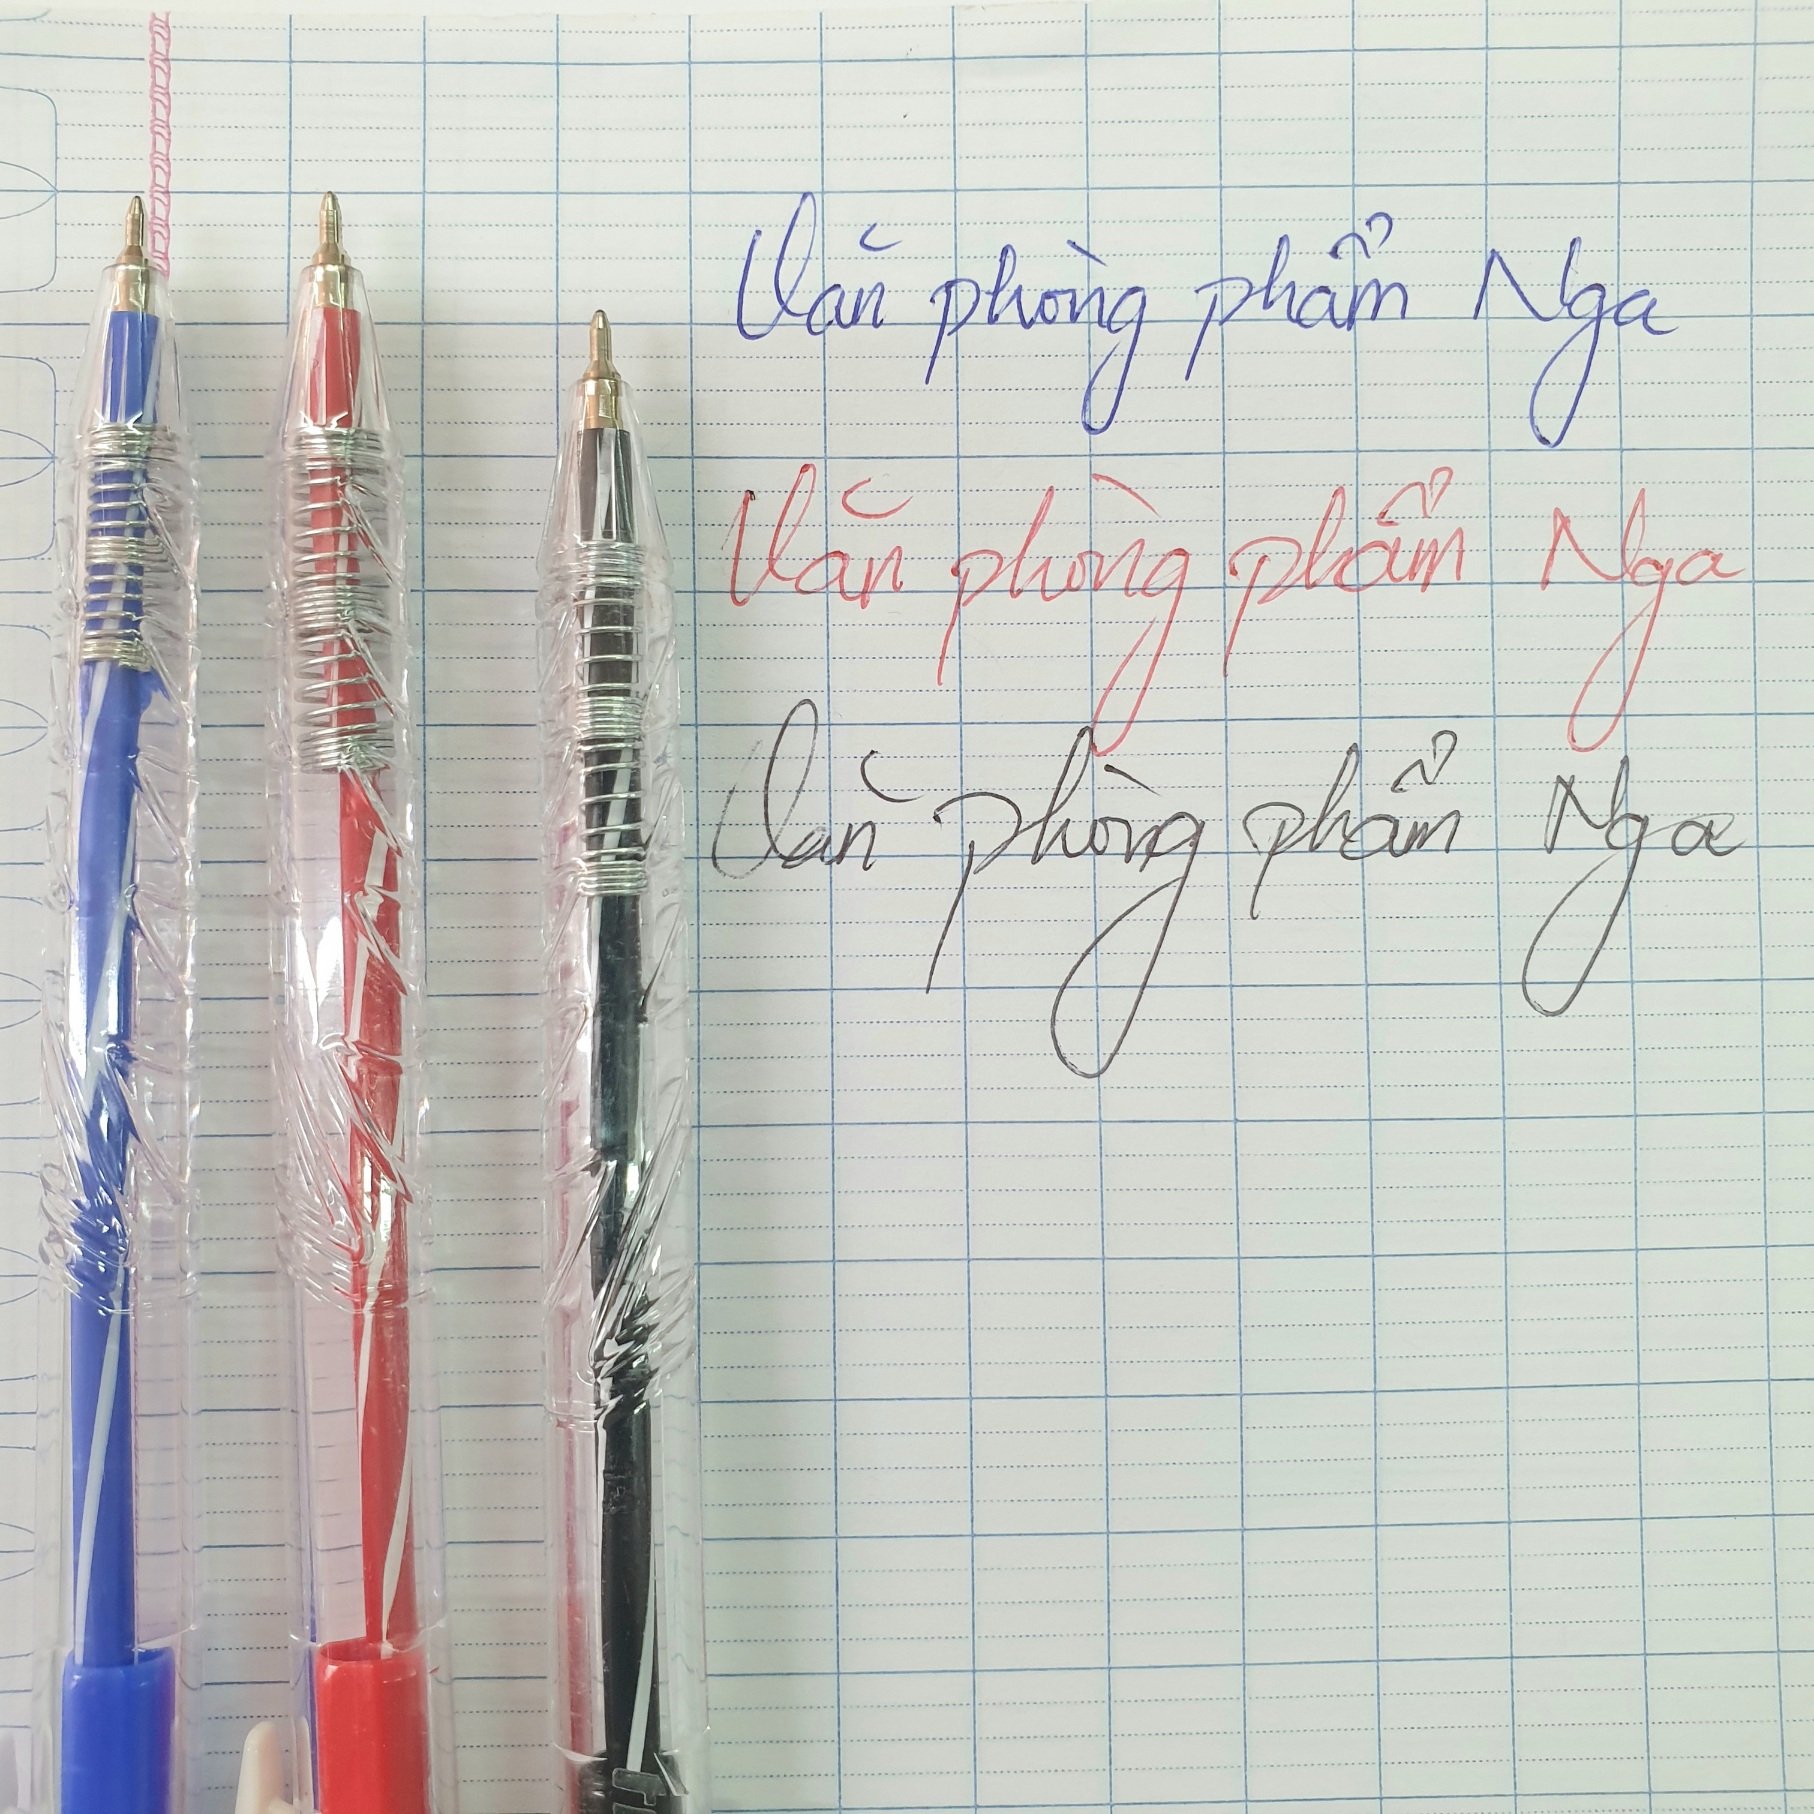 Văn phòng phẩm Nga
Văn phòng phẩm Nga
Văn phòng phẩm Nga